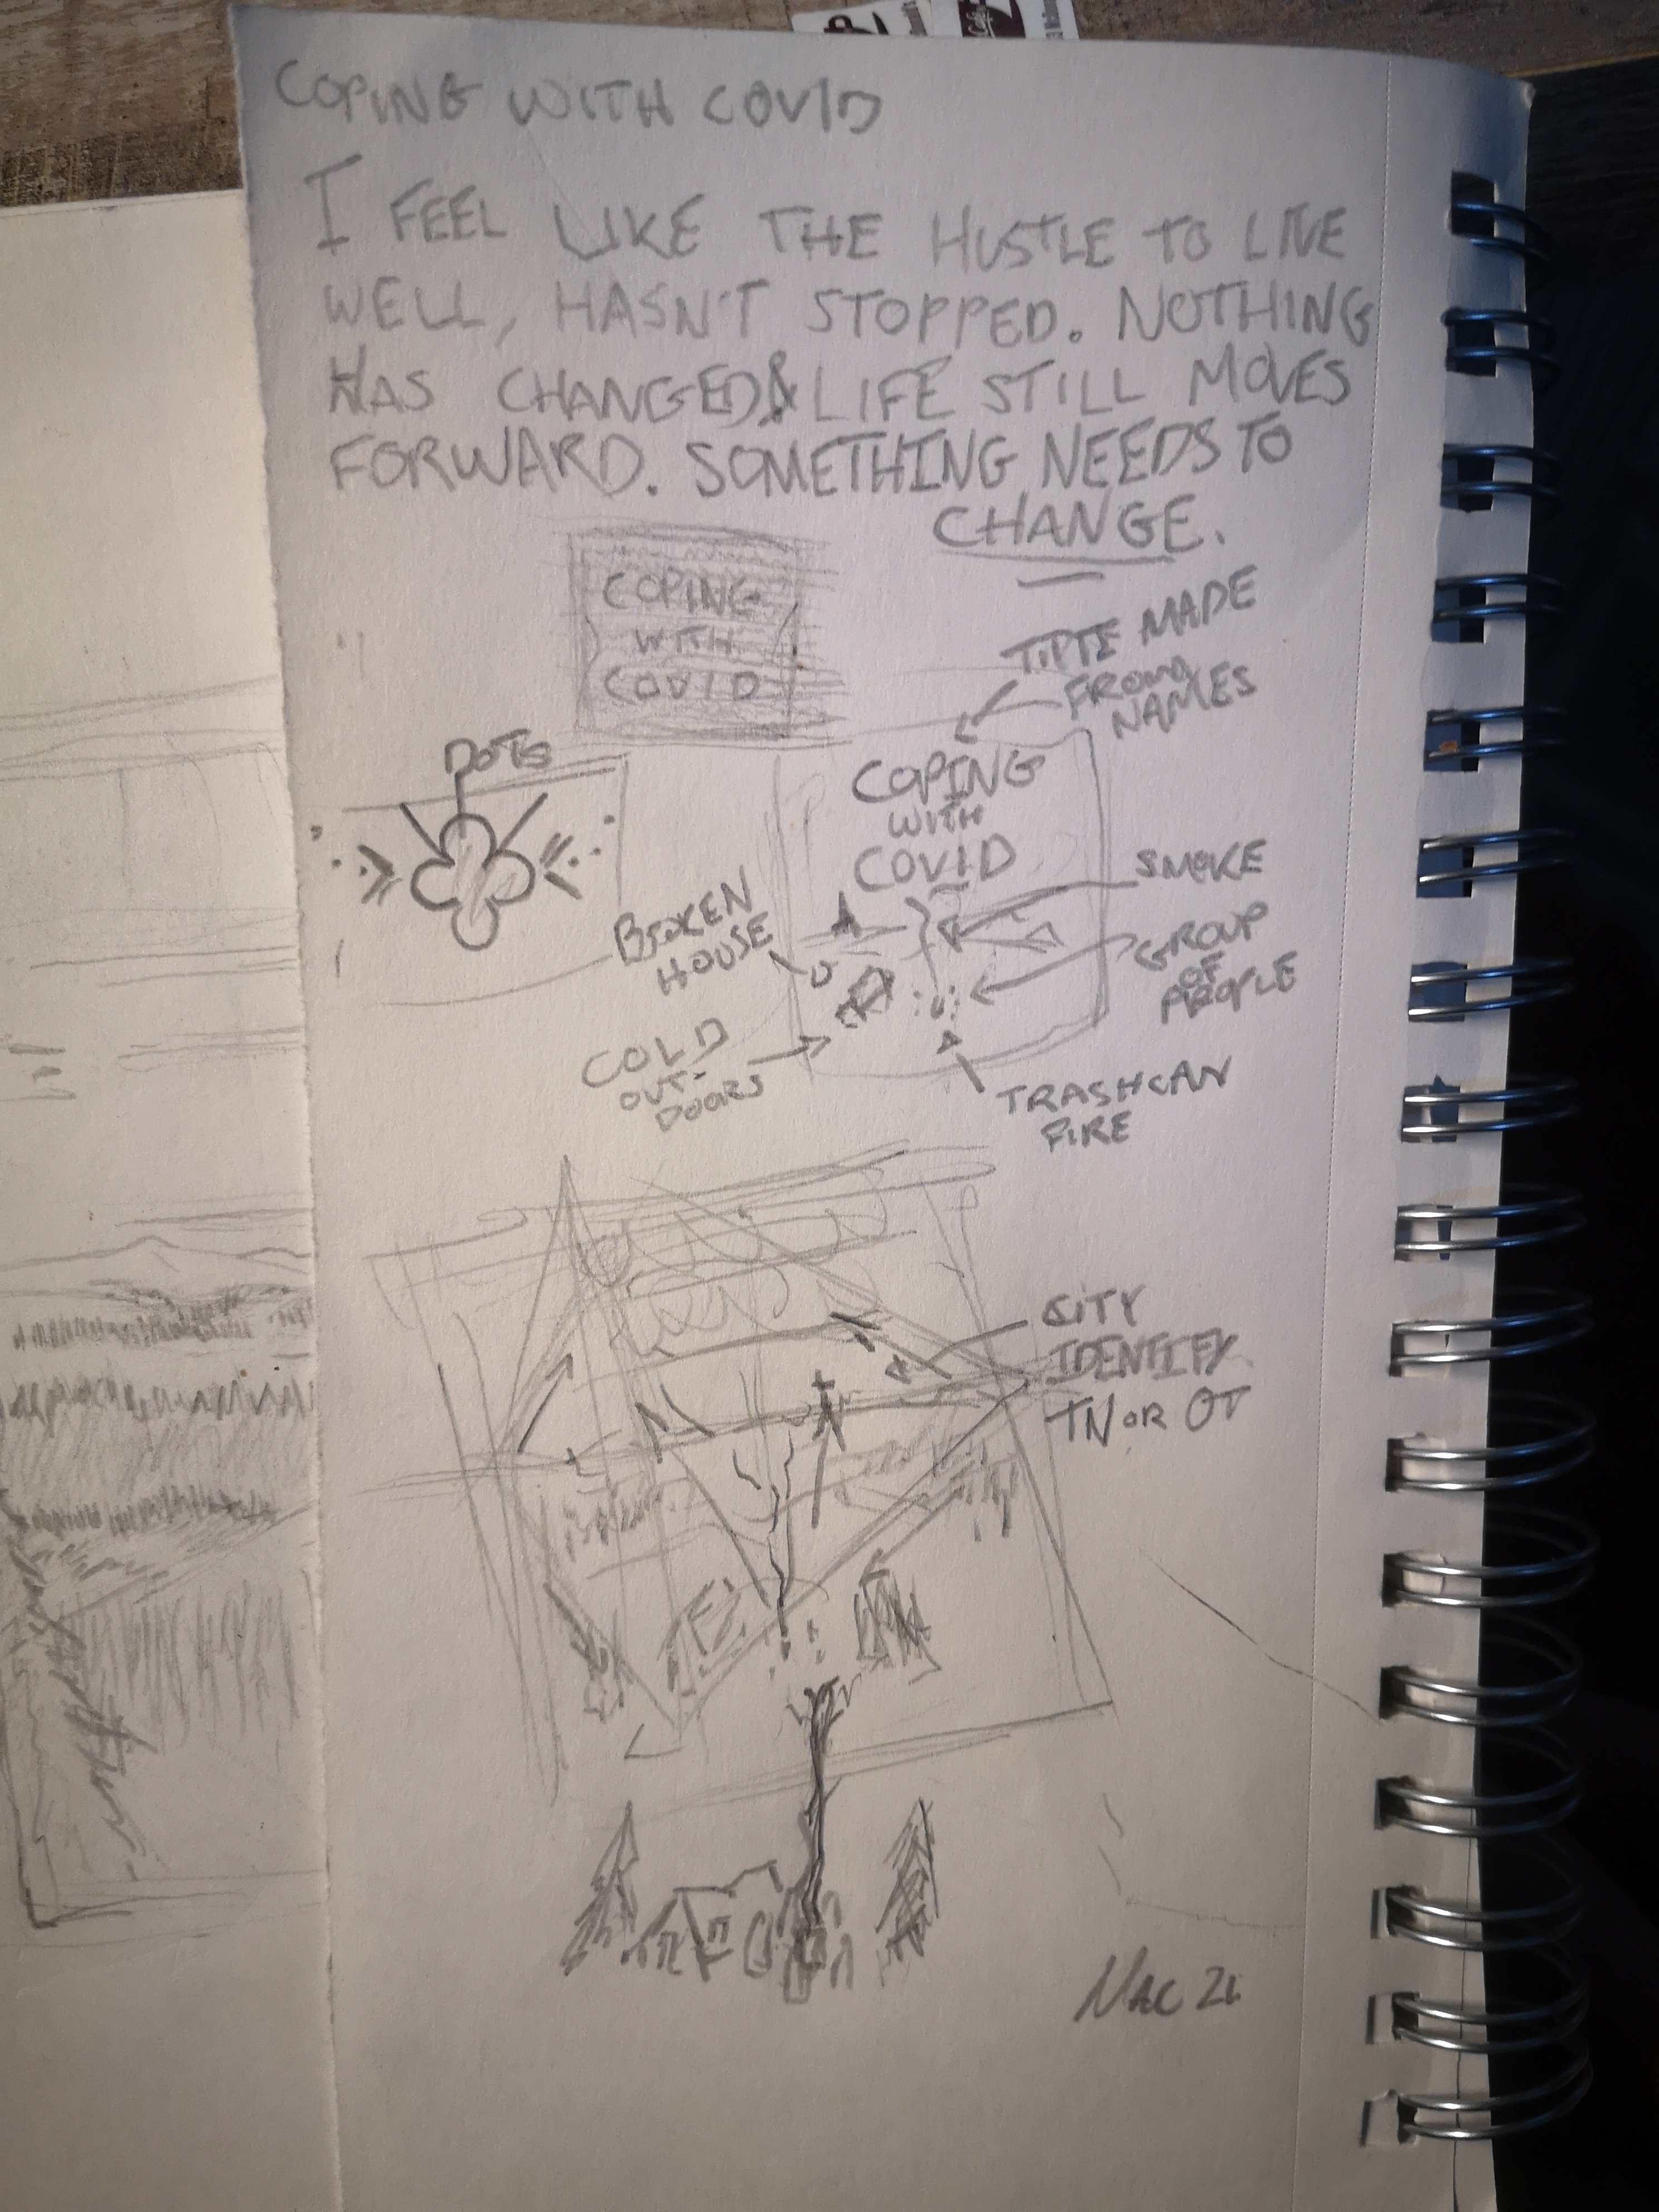 COPING WITH COVID
I FEEL LIKE THE HUSTLE TO LIVE
WELL, HASN'T STOPPED. NOTHING
HAS CHANGED & LIFE STILL MOVES
FORWARD. SOMETHING NEEDS TO
CHANGE.
COPING
WITH
COVID
MADE
FROM
NAMES
DOTS
COPING
WITH
COVID
SMOKE
BROKEN
HOUSE
GROUP
OF
PEOPLE
COLD
OUT-
DOORS
TRASHCAN
FIRE
CITY
IDENTIFY
TN OR OT